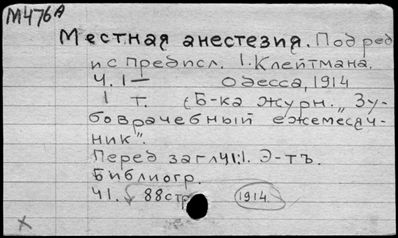 М476А
Местная анестезия. Под ред
и с предисл. I. Клейтмана.
Ч. I — Одесса, 1914
1 т. (Б-ка журн. „Зу-
боврачебный ежемесяч-
ник".
Перед загл. Э-тъ.
Библиогр.
Ч1. 88стр 1914.